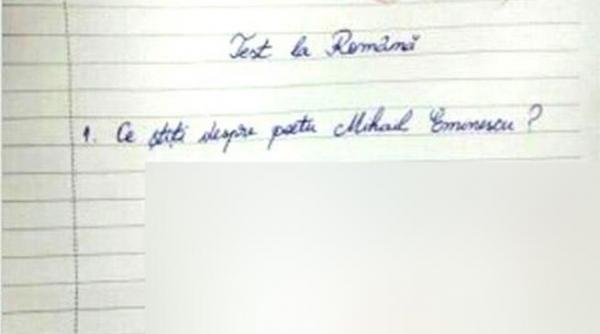 Test la Română
1. Ce știți despre poetu Mihail Eminescu?